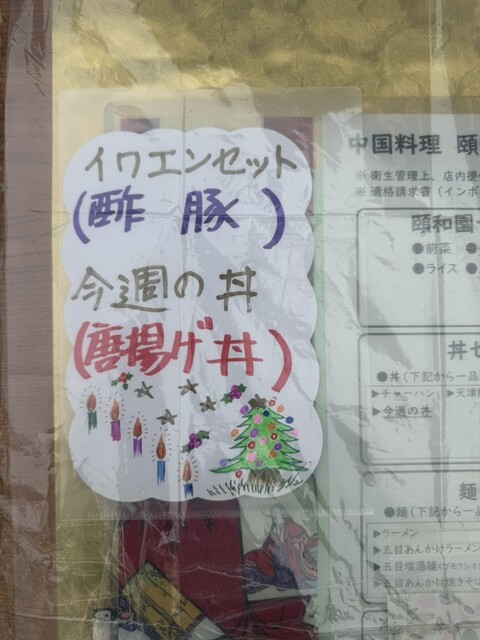 イワエンセット
(酢豚)
今週の丼
(唐揚げ丼)
中国料理 頤
※衛生管理上、店内提
※適格請求書(インボ
頤和園
●前菜
●ライス ●
丼セ
●丼(下記から一品
▶チャーハン ▶天津飯
▶今週の丼
麺
●麺(下記から一品
▶ラーメン
▶五目あんかけラーメン
▶五目塩湯麺
▶五目あんかけ焼きそ